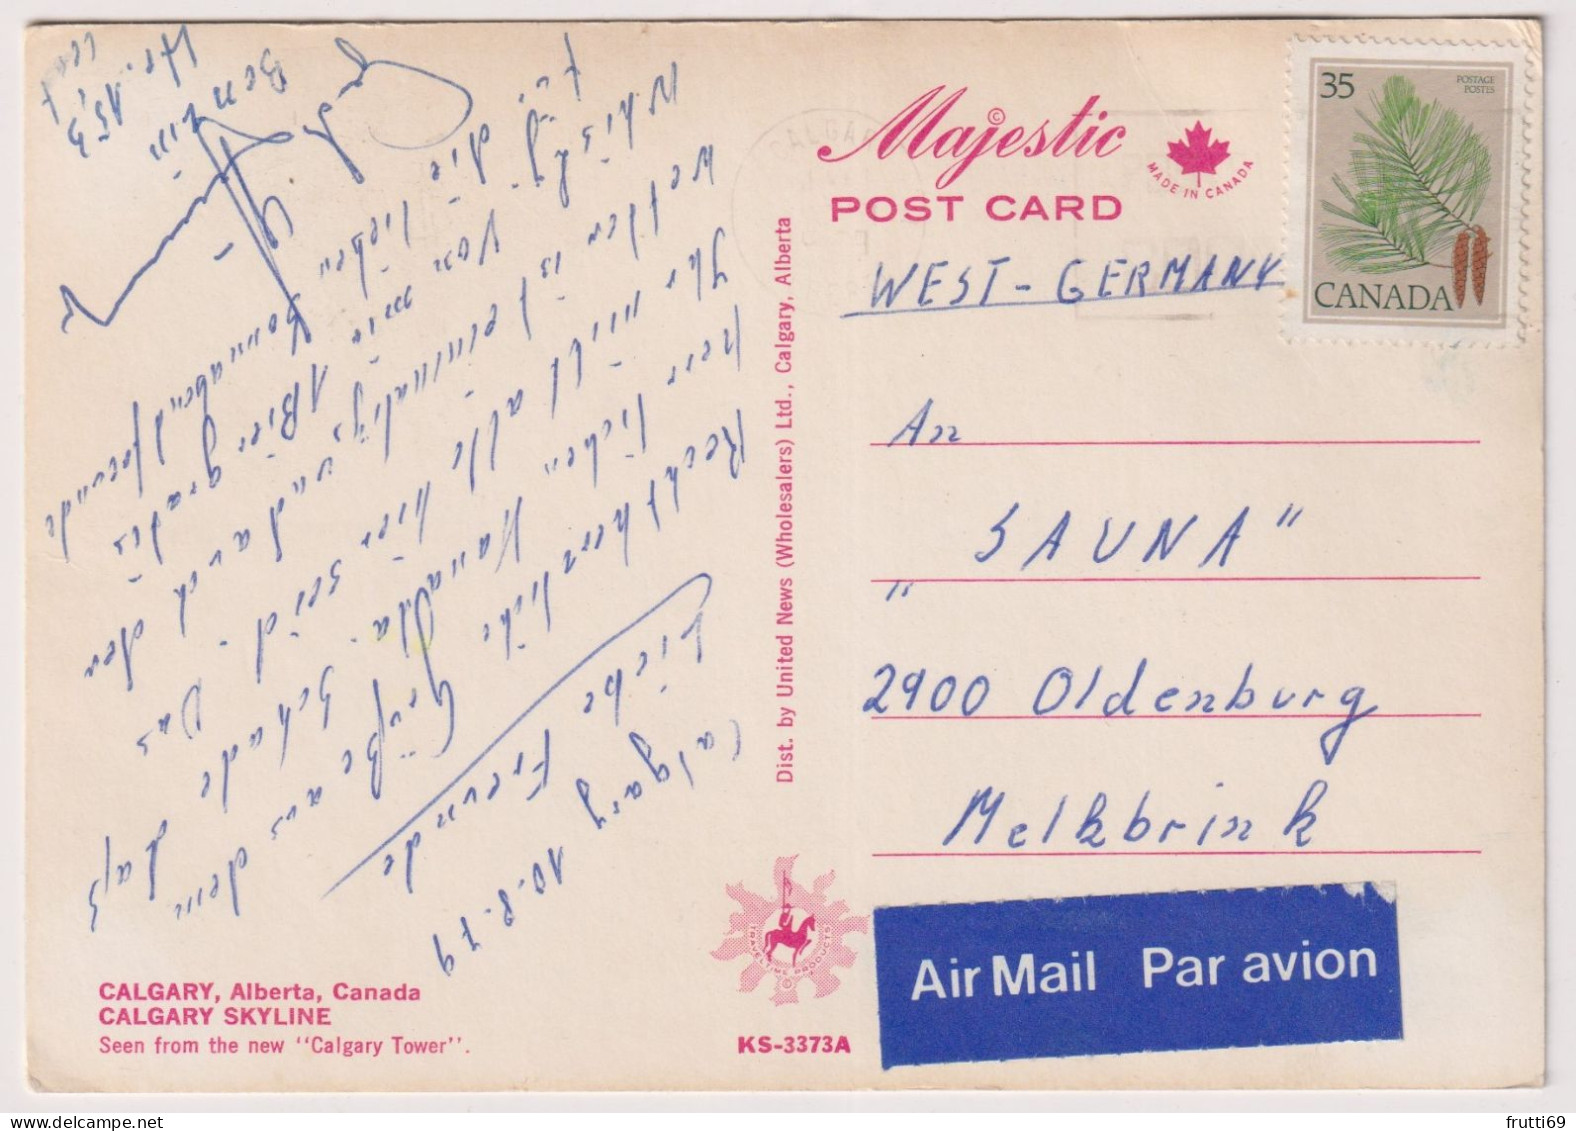 Majestic ©
POST CARD
MADE IN CANADA
35
POSTAGE
POSTES
CANADA
Calgary 10.8.79
Liebe Freunde
Recht herzliche Grüße aus dem
herrlichen Kanadda. Schade daß
Ihr alle hier seid - Das
Wetter ist einmalig und auch den
Whisky. Von mir 1 Bier gratis
für die lieben
WEST-GERMANY
An
"SAUNA"
2900 Oldenburg
Melkbrink
Air Mail Par avion
Dist. by United News (Wholesalers) Ltd., Calgary, Alberta
TRAVELTIME PRODUCTS
CALGARY, Alberta, Canada
CALGARY SKYLINE
Seen from the new "Calgary Tower".
KS-3373A
frutti69